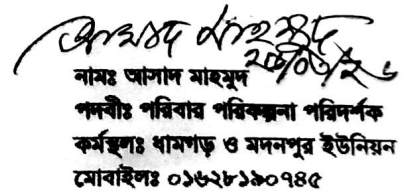 আসাদ মাহমুদ
নামঃ আসাদ মাহমুদ
পদবীঃ পরিবার পরিকল্পনা পরিদর্শক
কর্মস্থলঃ ধামগড় ও মদনপুর ইউনিয়ন
মোবাইলঃ ০১৬২৮১৯০৭৪৫